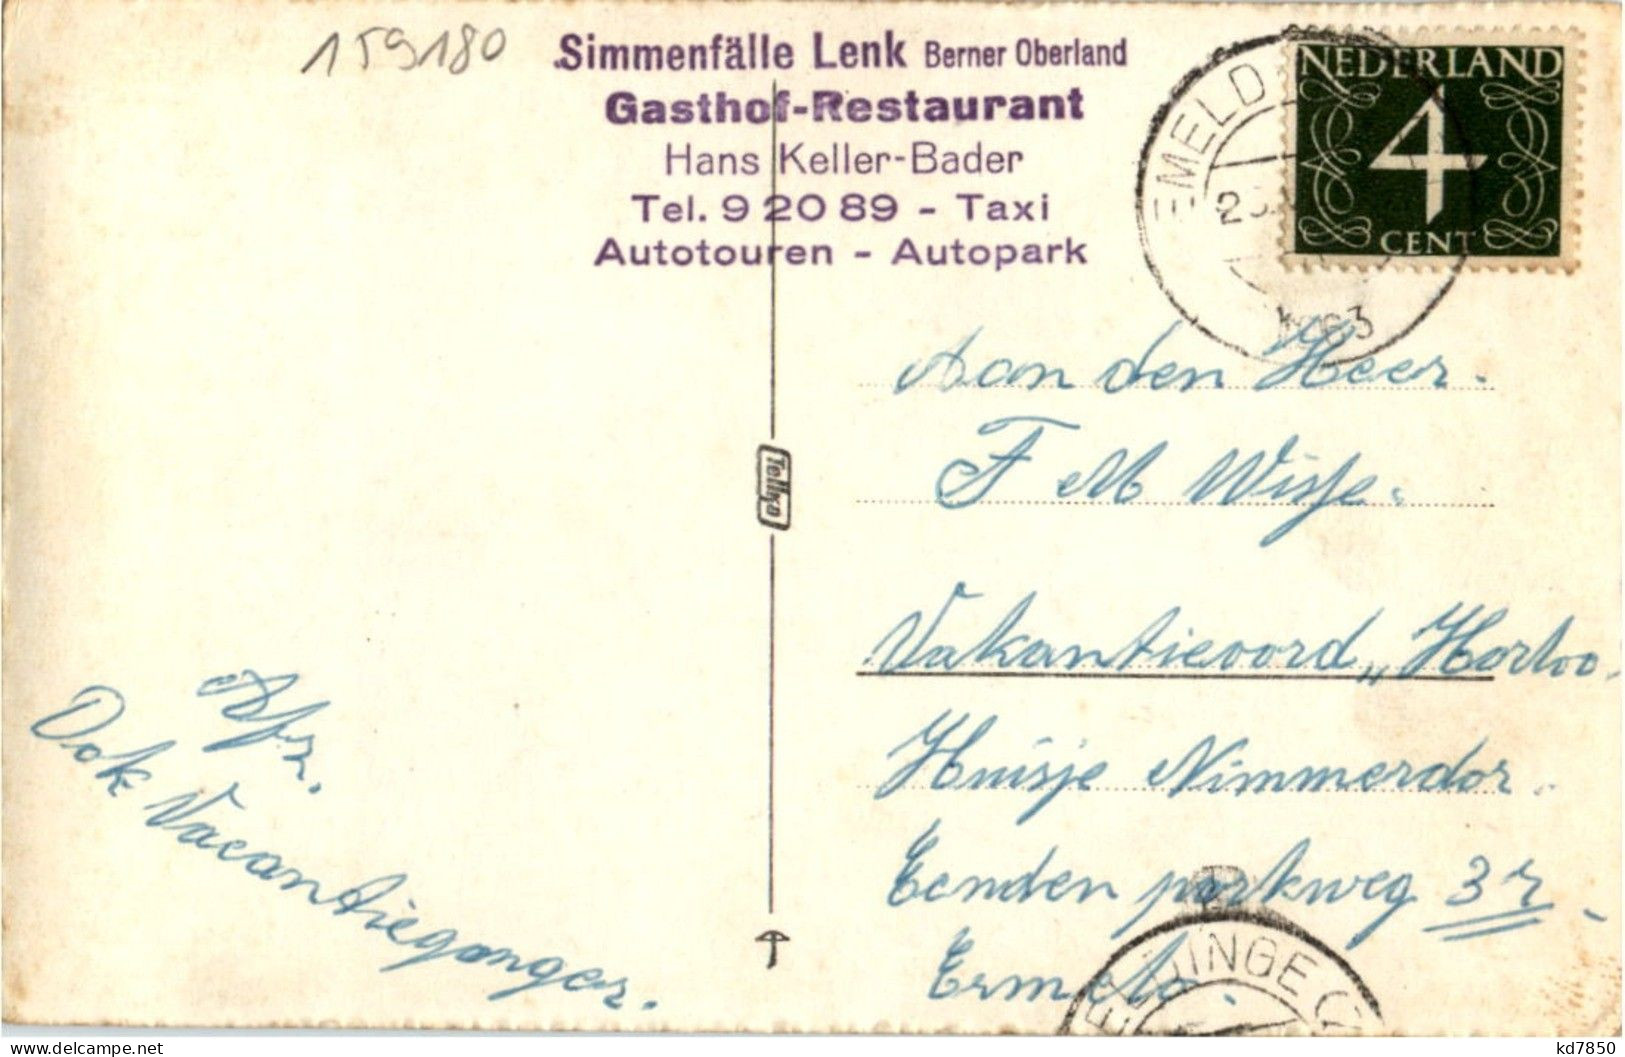 159180
Simmenfälle Lenk Berner Oberland
Gasthof-Restaurant
Hans Keller-Bader
Tel. 9 20 89 - Taxi
Autotouren - Autopark
NEDERLAND
4
CENT
EMELD
Aan den Heer.
F M Wisje.
Vakantieoord "Horloo.
Huisje Nimmerdor.
Eendenparkweg 32
Ermelo.
Tellko
Afz.
Ook Vacantieganger.
kd7850